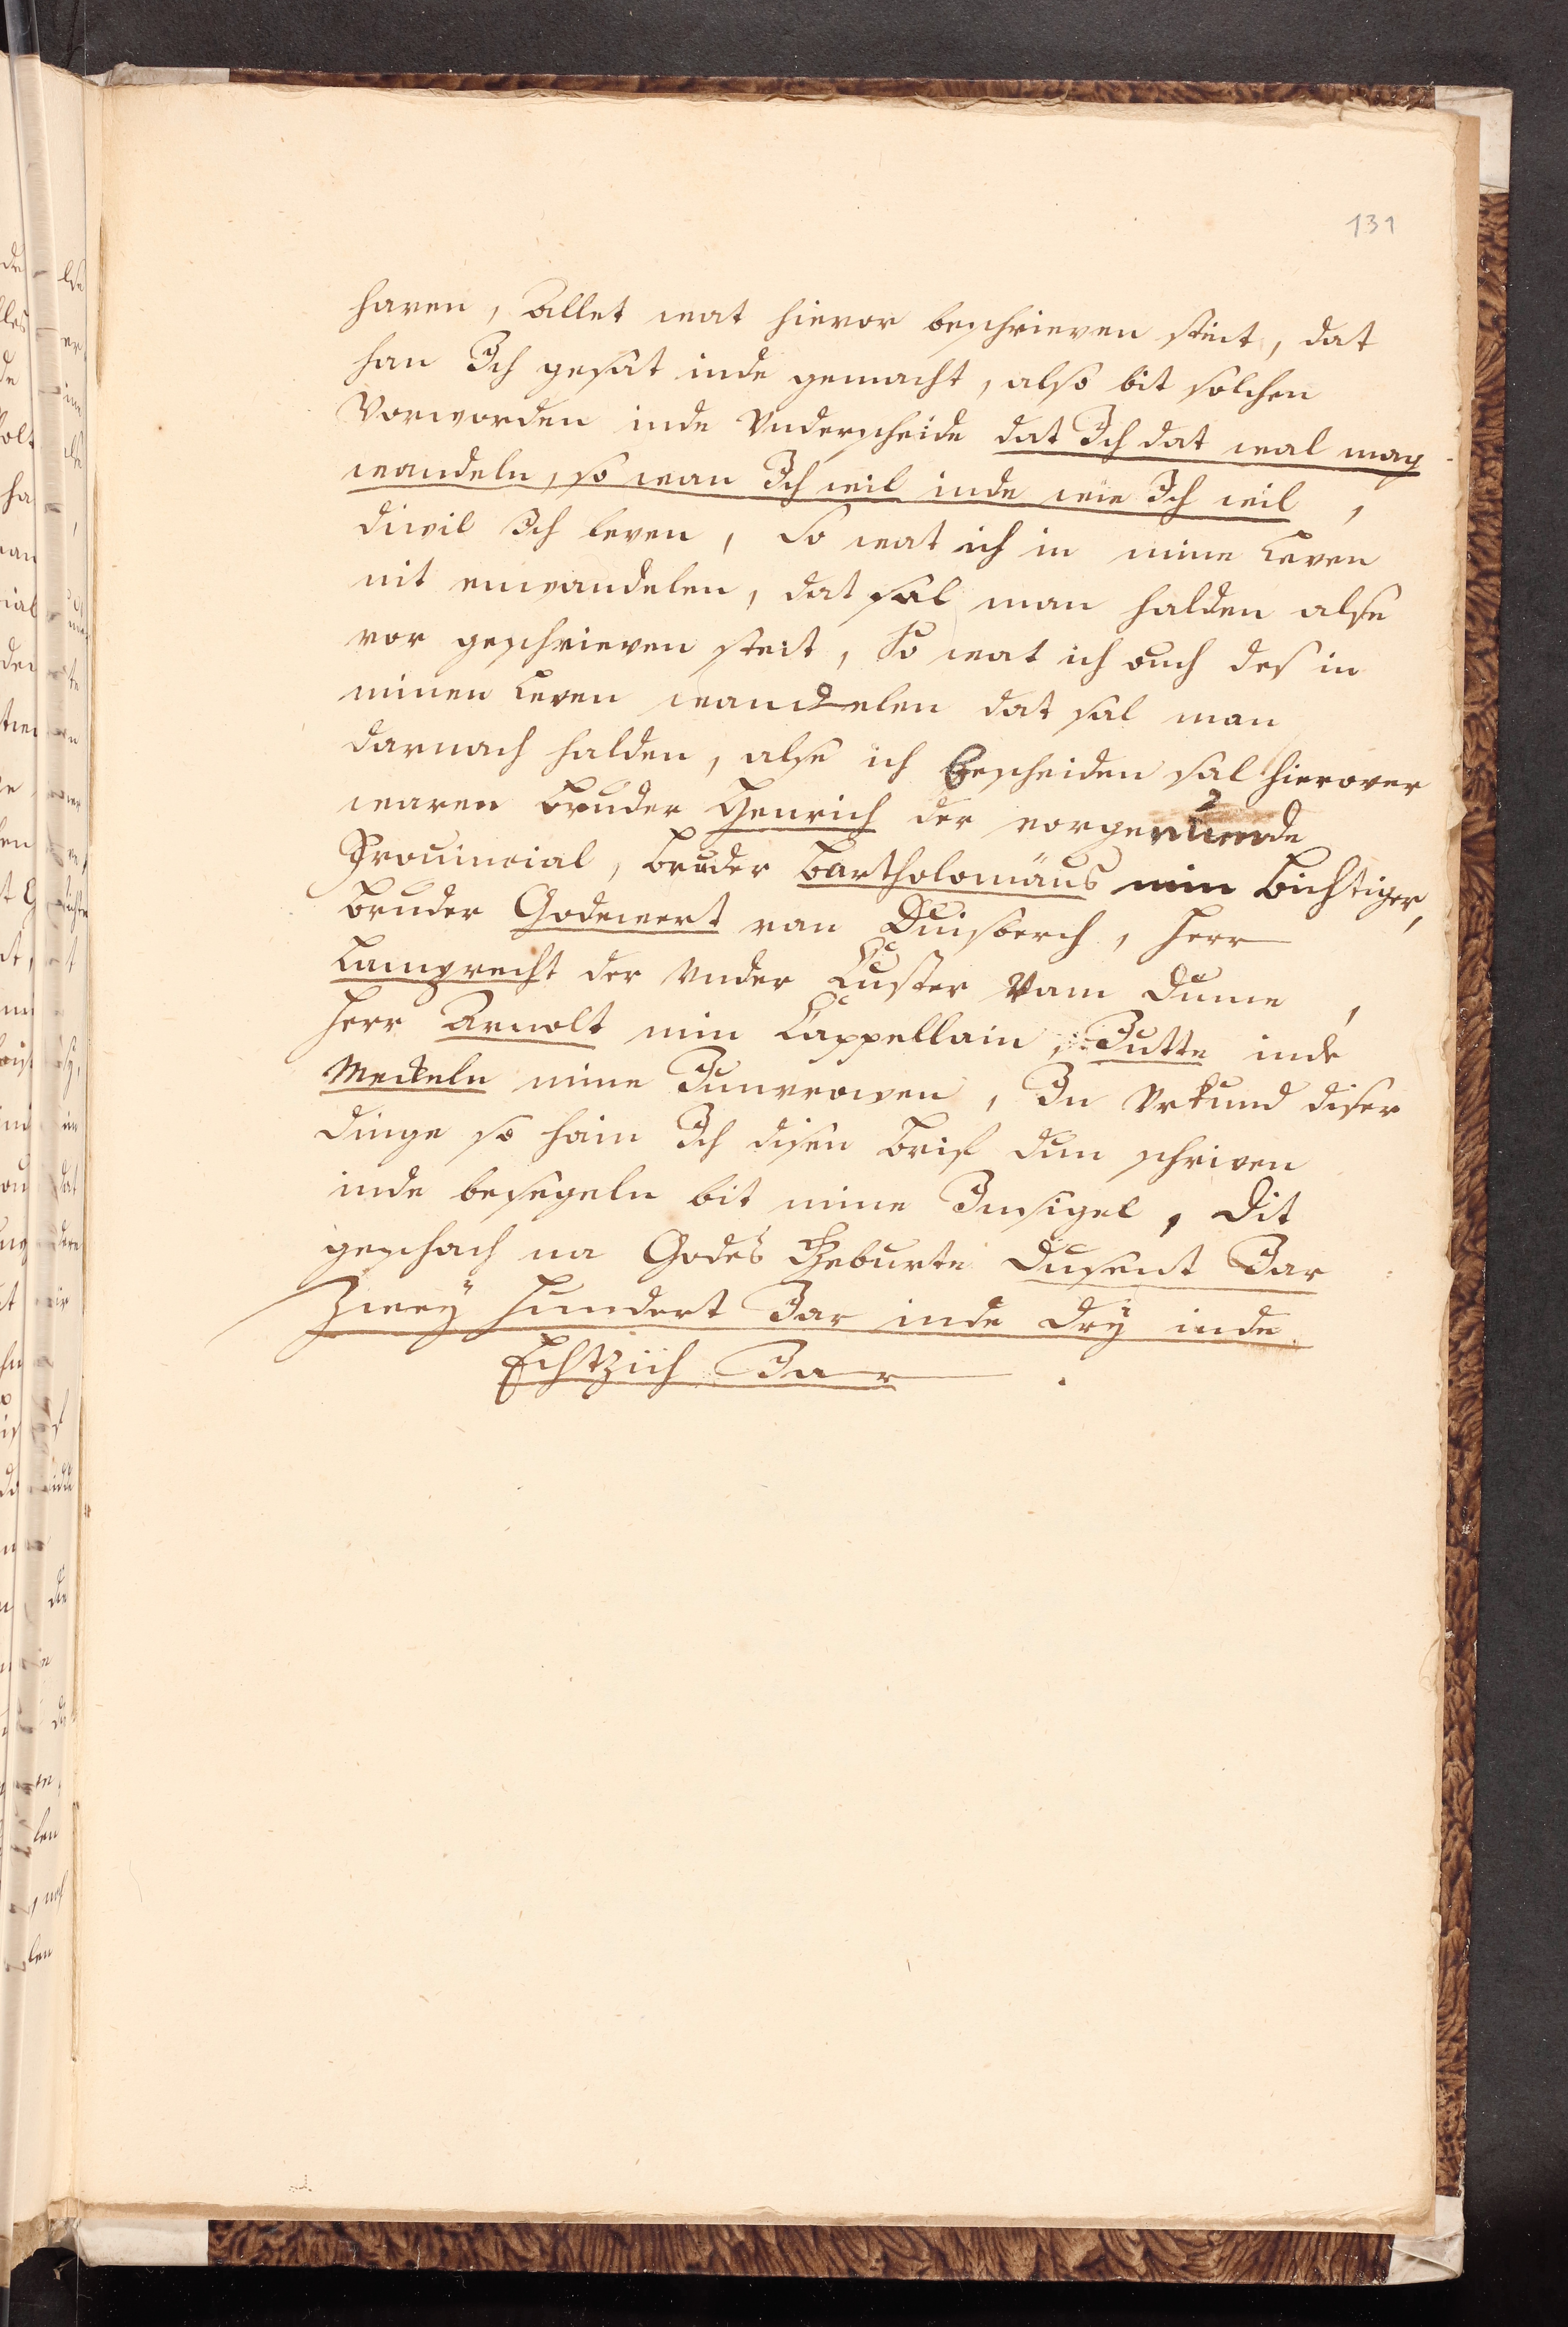 131
haven, Allet wat hievor beschrieven steit, dat
han Ich gesat inde gemacht, also bit solchen
Vorworden inde Underscheide dat Ich dat wal mag
wandeln, so wan Ich wil inde wie Ich wil,
diwil Ich leven, So wat ich in mine Leven
nit enwandelen, dat sal man halden alse
vor geschrieven steit, So wat ich ouch des in
minen Leven wandelen dat sal man
darnach halden, alse ich bescheiden sal hierover
waren Bruder Henrich der vorgenumde
Provincial, Bruder Bartholomäus min Bichtiger,
Bruder Godewert van Duisberch, Herr
Lamprecht der Under Custer Vam Dume,
Herr Arnolt min Cappellain, Jutte inde
Mechteln mine Junvrowen, In Urkund diser
Dinge so hain Ich disen Brif dun schriven
inde besegeln bit mine Insigel, Dit
geschach na Godes Geburte Dusent Jar
Zweÿ Hundert Jar inde Drÿ inde
Echtzich Jar.